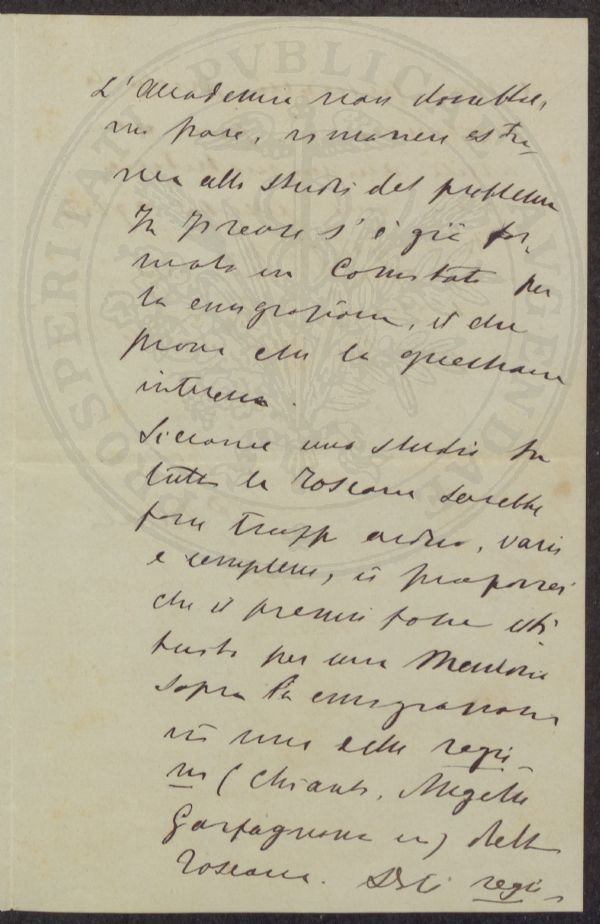 L'Accademia non dovrebbe,
mi pare, rimanere estra-
nea allo studio del problema
In Firenze s'è già for-
mato un Comitato per
la emigrazione, il che
prova che la questione
interessa.
Siccome uno studio su
tutta la Toscana sarebbe
forse troppo arduo, vario
e complesso, io proporrei
che il premio fosse isti-
tuito per una Memoria
sopra la emigrazione
in una delle regio-
ni (Chianti, Mugello
Garfagnana ec) della
Toscana. Dette regio-
PROSPERITATI PVBLICAE AVGENDAE